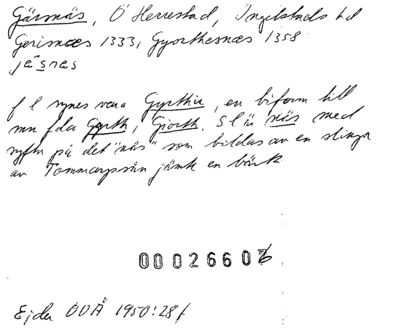 Gärsnäs, Ö Herrestad, Ingelstads hd
Gerisnæs 1333, Gyorthesnæs 1358
jä̱snas
f l synes vara Gyrthir, en biform till
mn fda Gyrth, Giorth. S l är näs med
syftn på det "näs" som bildas av en slinga
av Tommarpsån jämte en bäck
00026606
Ejder ODÅ 1950:28f